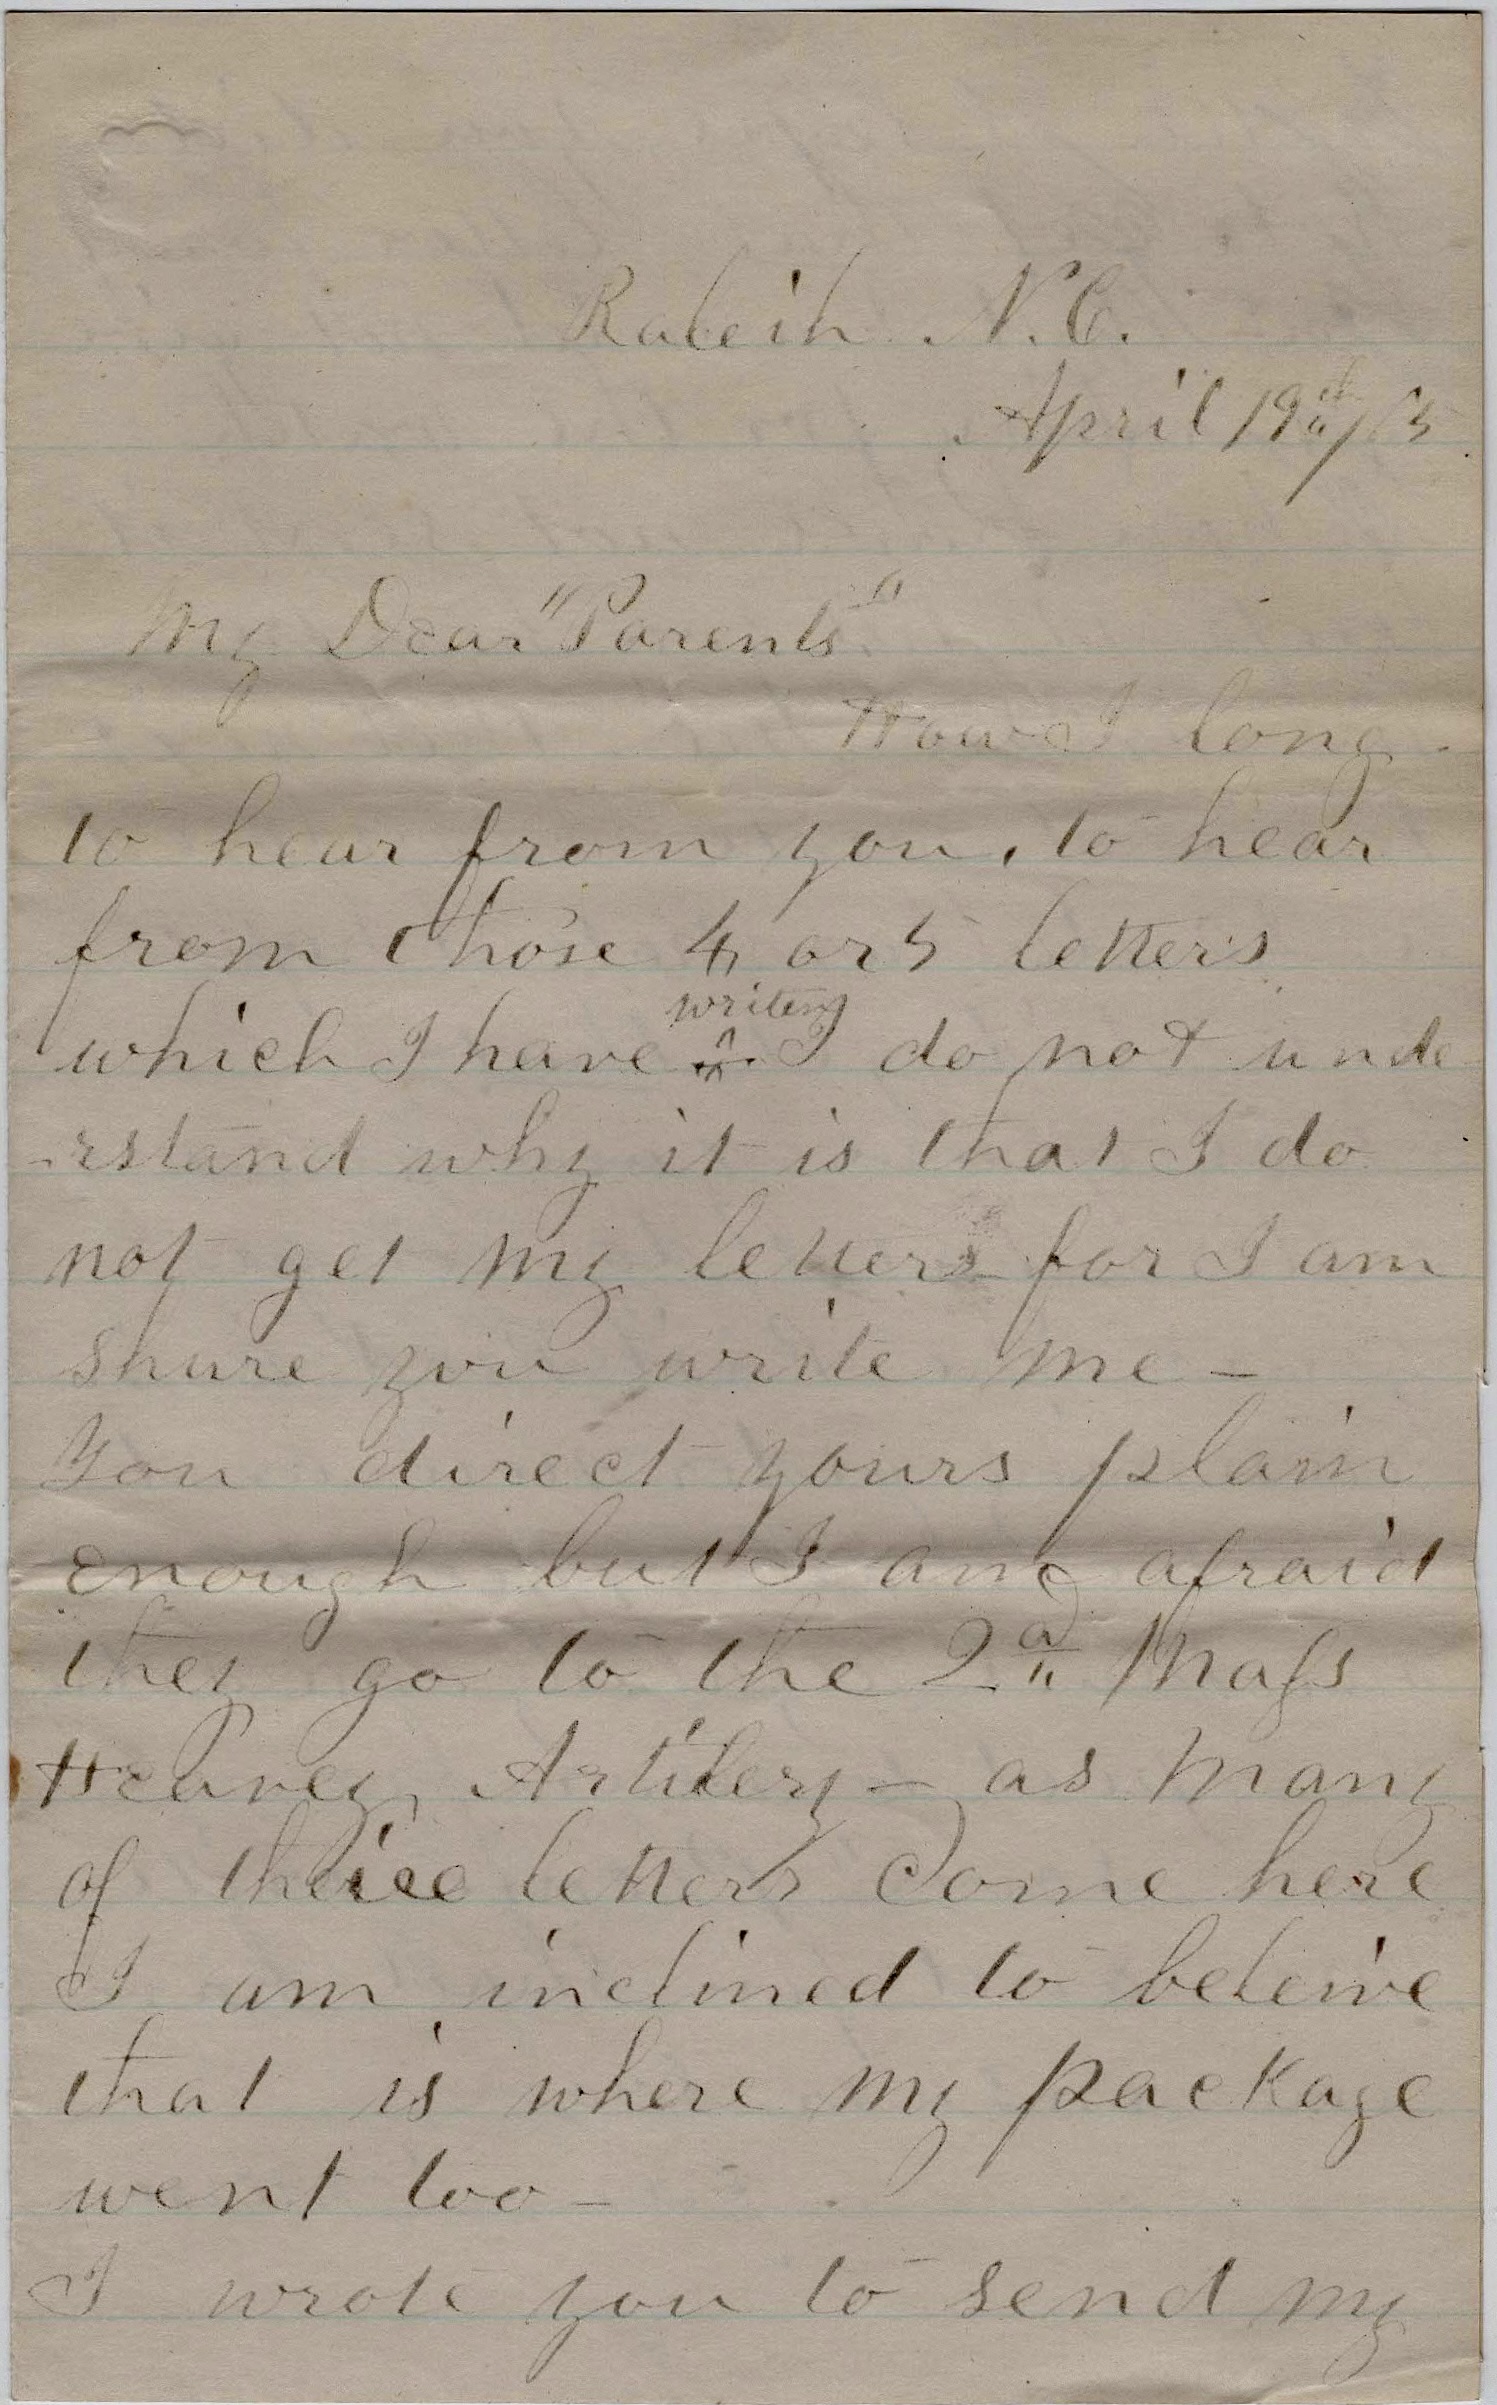 Raleih N.C.
April 19th/65
My Dear "Parents"
How I long
to hear from you, to hear
from those 4 or 5 letters
writen
which I have ^ I do not unde
-rstand why it is that I do
not get my letters for I am
shure you write me -
You direct yours plain
enough but I am afraid
they go to the 2d Mass
Heavey Artilery - as many
of theice letters Come here
I am inclined to beleive
that is where my package
went too -
I wrote you to send my